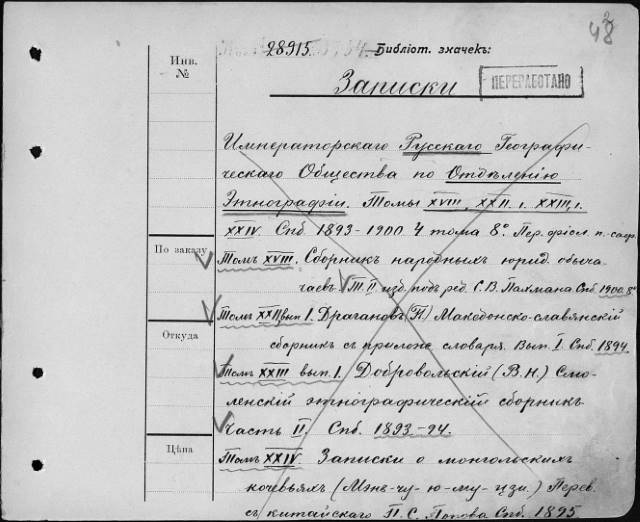 42
8
28915.
Библіот. значекъ:
Инв.
№
Записки
ПЕРЕРАБОТАНО
Императорскаго Русскаго Географи-
ческаго Общества по Отдѣленію
Этнографіи. Томы XVIII, XXII.1. XXIII,1.
XXIV. Спб 1893-1900 4 тома 8°.
По заказу
Томъ XVIII. Сборникъ народныхъ юрид. обыча-
чаевъ. Т. II изд. подъ ред. С. В. Пахмана Спб 1900. 8°
Томъ XXII вып 1. Драгановъ (П.) Македонско-славянскій
Откуда
сборникъ съ прилож словаря. Вып. I. Спб. 1894.
Томъ XXIII вып. 1. Добровольскій (В. Н.) Смо-
ленскій этнографическій сборникъ
Часть II. Спб. 1893-94.
Цѣна
Томъ XXIV. Записки о монгольскихъ
кочевьяхъ (Мэнъ-гу-ю-му-цзи.) Перев.
съ китайскаго П. С. Попова Спб. 1895